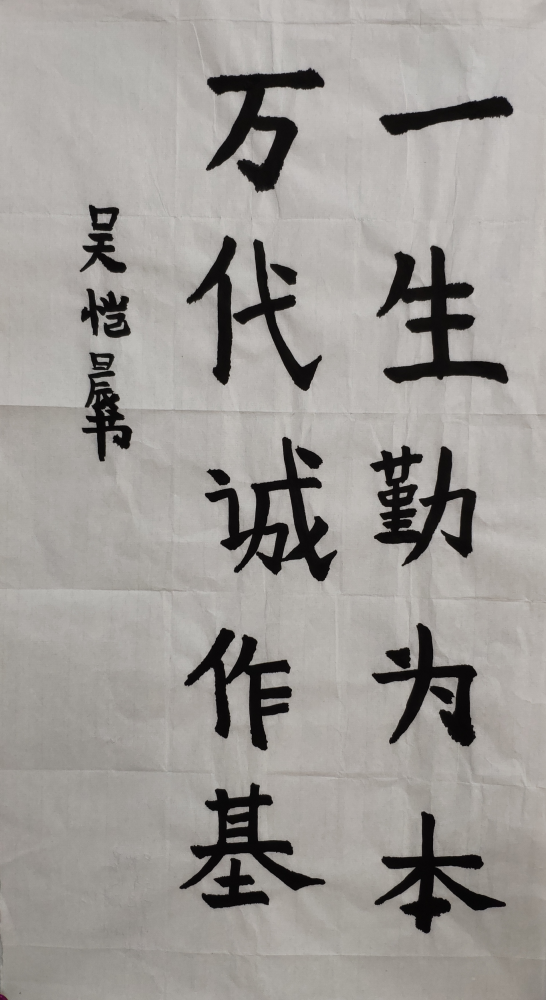 一生勤为本
万代诚作基
吴恺晨书